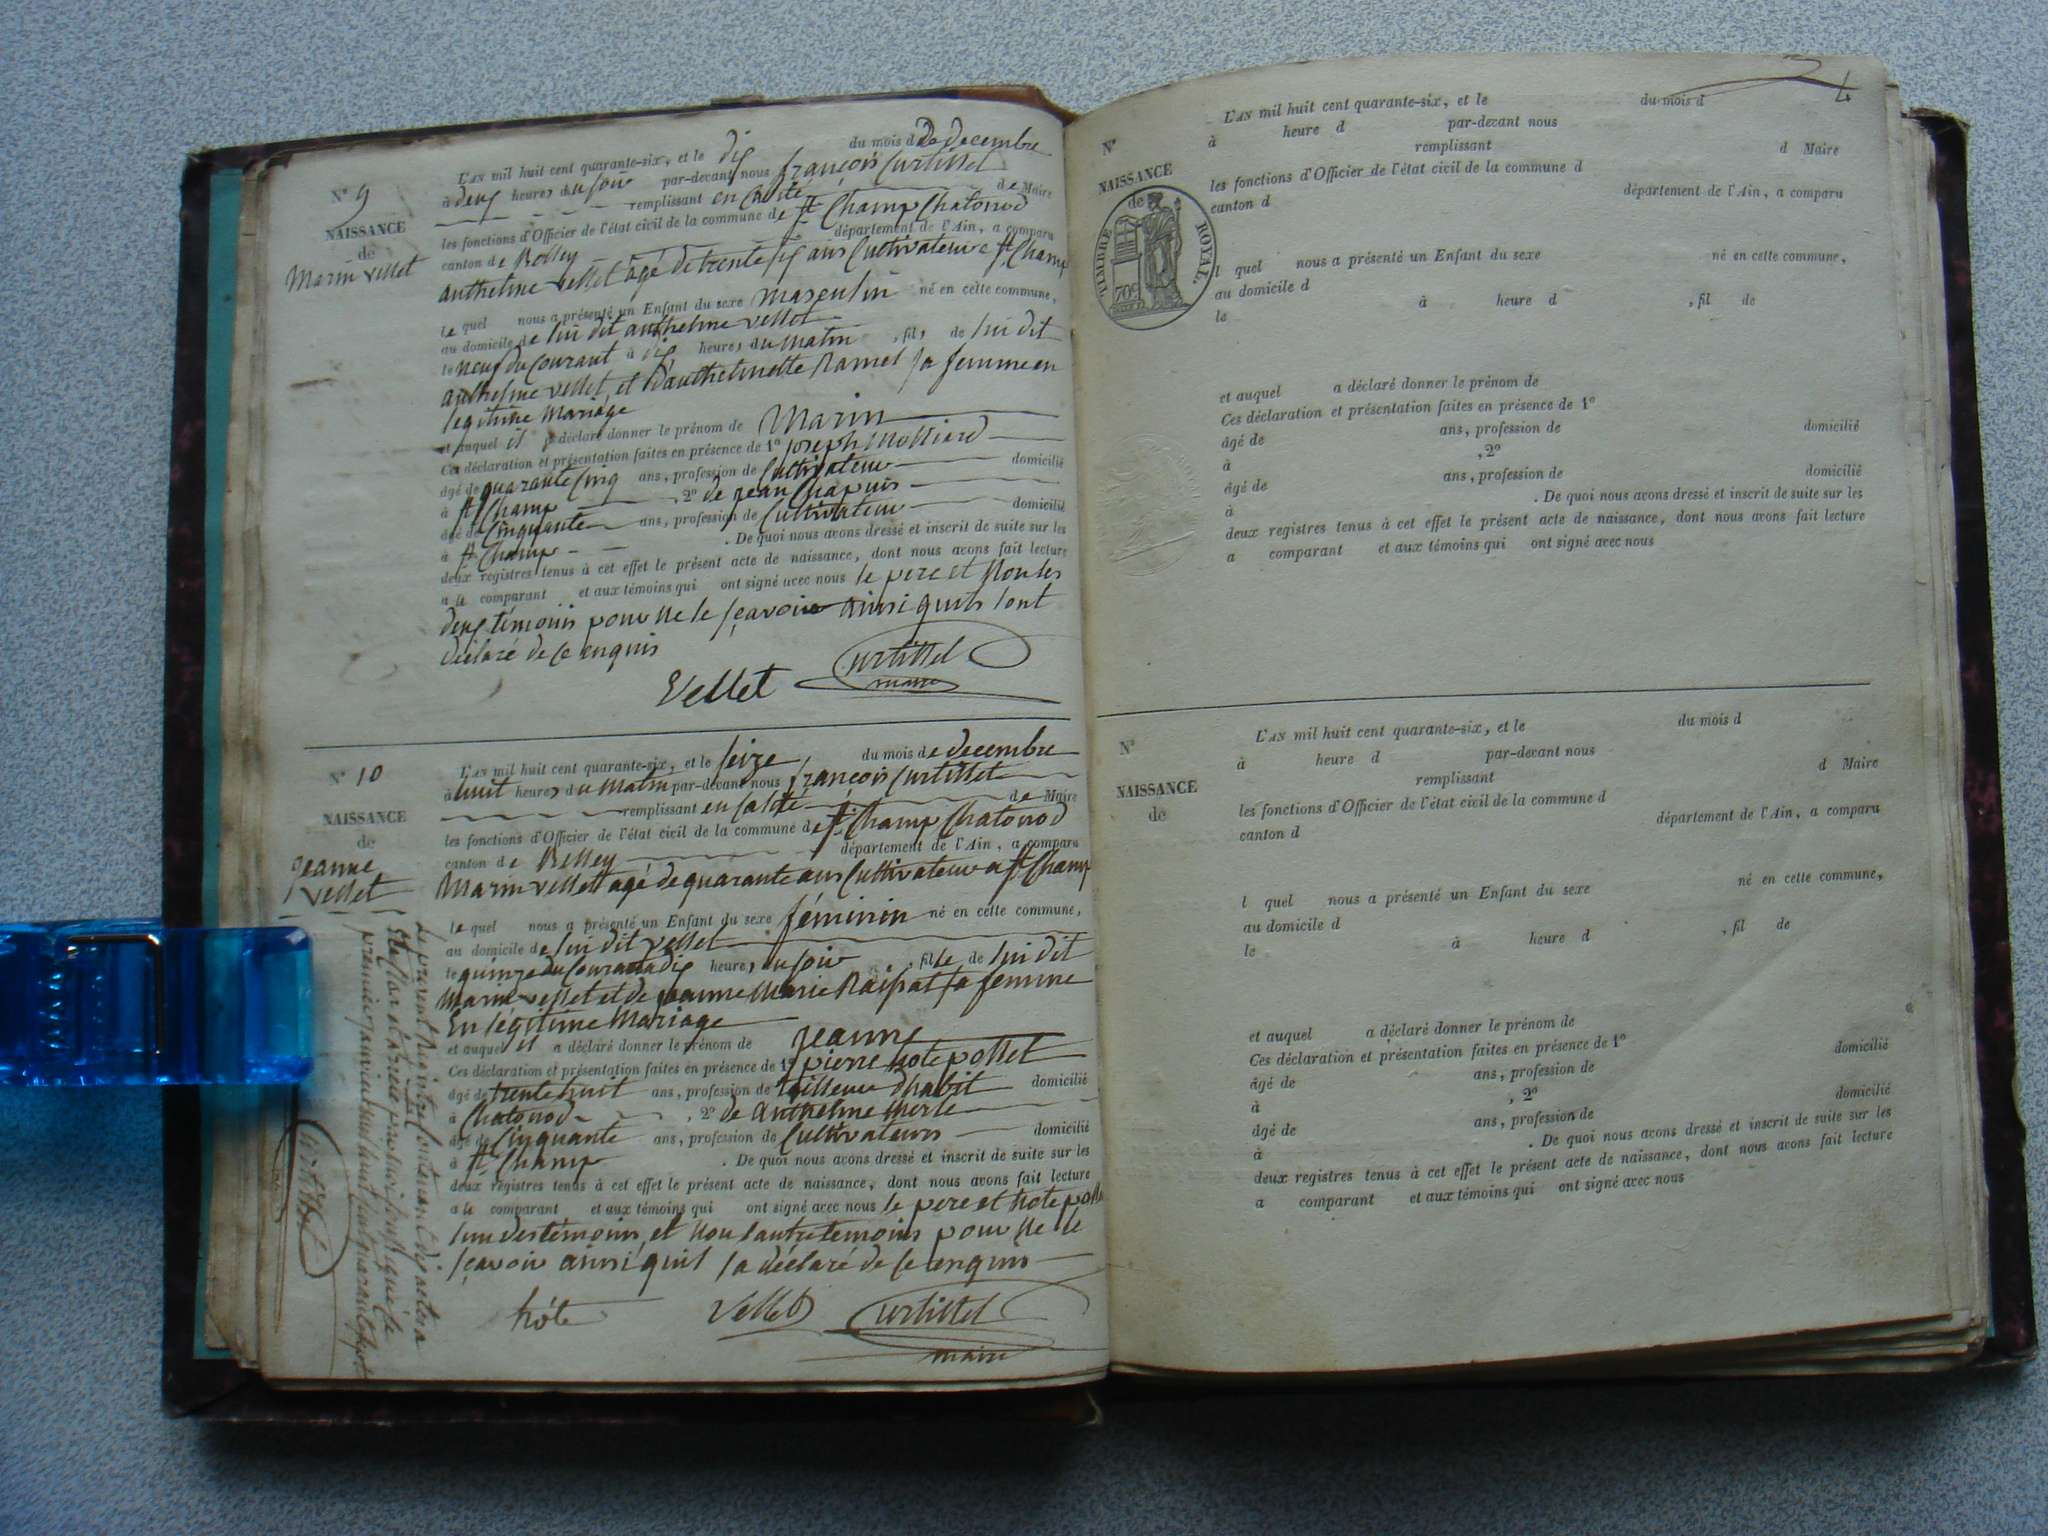 N° 9
NAISSANCE
de
Marin Vellet
L'AN mil huit cent quarante-six, et le dix du mois d de decembre
à deux heures du soir par-devant nous françois Curtillet
remplissant en Calité de Maire
les fonctions d'Officier de l'état civil de la commune de St Champ Chatonod
canton de Belley département de l'Ain, a comparu
anthelme vellet agé de trente six ans Cultivateur a St Champ
lequel nous a présenté un Enfant du sexe masculin né en cette commune,
au domicile de lui dit anthelme vellet
le neuf du Courant à dix heures du matin, fils de lui dit
anthelme vellet, et d'anthelmette Ramel sa femme en
legitime Mariage
et auquel il a déclaré donner le prénom de Marin
Ces déclaration et présentation faites en présence de 1° joseph Molliard
âgé de quarante Cinq ans, profession de Cultivateur domicilié
à St Champ, 2° de jean Chapuis
âgé de Cinquante ans, profession de Cultivateur domicilié
à St Champ. De quoi nous avons dressé et inscrit de suite sur les
deux registres tenus à cet effet le présent acte de naissance, dont nous avons fait lecture
a le comparant et aux témoins qui ont signé avec nous le pere et Non les
deux témoins pour ne le sçavoir ainsi quils lont
déclaré de ce enquis
Vellet Curtillet
maire
N° 10
NAISSANCE
de
jeanne
Vellet
L'AN mil huit cent quarante-six, et le seize du mois de decembre
à huit heures du Matin par-devant nous françois Curtillet
remplissant en Calité de Maire
les fonctions d'Officier de l'état civil de la commune de St Champ Chatonod
canton de Belley département de l'Ain, a comparu
Marin vellet agé de quarante ans Cultivateur a St Champ
lequel nous a présenté un Enfant du sexe féminin né en cette commune,
au domicile de lui dit vellet
le quinze du Courant à dix heures du soir, fille de lui dit
Marin vellet et de jeanne Marie sa femme
En légitime Mariage
et auquel il a déclaré donner le prénom de jeanne
Ces déclaration et présentation faites en présence de 1° pierre hote pollet
âgé de trente huit ans, profession de tailleur d'habit domicilié
à Chatonod, 2° de anthelme Merle
âgé de Cinquante ans, profession de Cultivateurs domicilié
à St Champ. De quoi nous avons dressé et inscrit de suite sur les
deux registres tenus à cet effet le présent acte de naissance, dont nous avons fait lecture
a le comparant et aux témoins qui ont signé avec nous le pere et hote
lun des témoins, et Non lautre temoins pour ne le
sçavoir ainsi quil la déclaré de ce enquis
hôte Vellet Curtillet
maire
Le présent
premier janvier mil huit cent quarante sept
Curtillet
3
4
N°
NAISSANCE
de
TIMBRE ROYAL
70c
L'AN mil huit cent quarante-six, et le du mois d
à heure d par-devant nous
remplissant d Maire
les fonctions d'Officier de l'état civil de la commune d
canton d département de l'Ain, a comparu
l quel nous a présenté un Enfant du sexe né en cette commune,
au domicile d
le à heure d , fil de
et auquel a déclaré donner le prénom de
Ces déclaration et présentation faites en présence de 1°
âgé de ans, profession de domicilié
à , 2°
âgé de ans, profession de domicilié
à . De quoi nous avons dressé et inscrit de suite sur les
deux registres tenus à cet effet le présent acte de naissance, dont nous avons fait lecture
a comparant et aux témoins qui ont signé avec nous
N°
NAISSANCE
de
L'AN mil huit cent quarante-six, et le du mois d
à heure d par-devant nous
remplissant d Maire
les fonctions d'Officier de l'état civil de la commune d
canton d département de l'Ain, a comparu
l quel nous a présenté un Enfant du sexe né en cette commune,
au domicile d
le à heure d , fil de
et auquel a déclaré donner le prénom de
Ces déclaration et présentation faites en présence de 1°
âgé de ans, profession de domicilié
à , 2°
âgé de ans, profession de domicilié
à . De quoi nous avons dressé et inscrit de suite sur les
deux registres tenus à cet effet le présent acte de naissance, dont nous avons fait lecture
a comparant et aux témoins qui ont signé avec nous